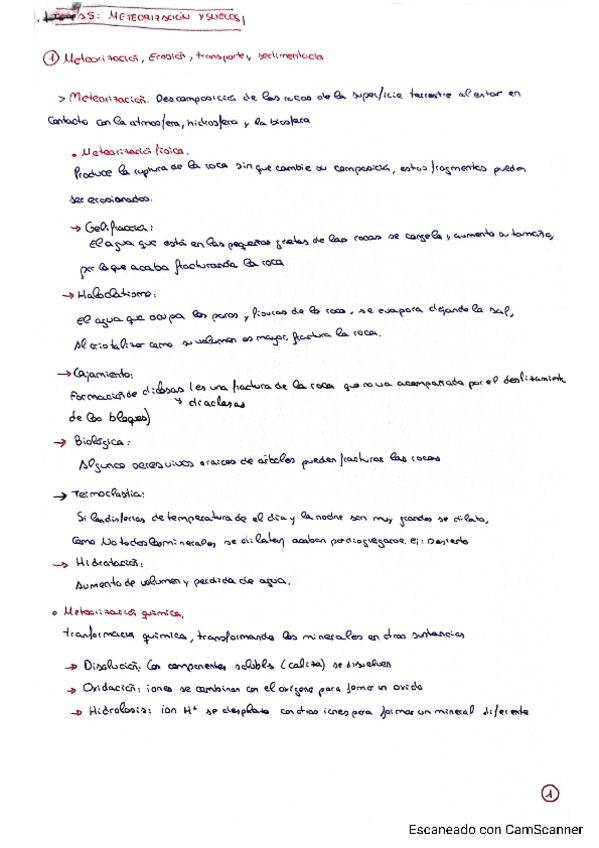 5: METEORIZACIÓN Y SUELOS
① Meteorización, Erosión, transporte y sedimentación
> Meteorización. Descomposición de las rocas de la superficie terrestre al estar en
contacto con la atmosfera, hidrosfera y la biosfera
• Meteorización física.
Produce la ruptura de la roca sin que cambie su composición, estos fragmentos pueden
ser erosionados.
→ Gelifracción:
El agua que está en las pequeñas grietas de las rocas se congela y aumenta su tamaño,
por lo que acaba fracturando la roca
→ Haloclatismo:
El agua que ocupa los poros y fisuras de la roca, se evapora dejando la sal,
Al cristalizar como su volumen es mayor, fractura la roca.
→ Lajamiento:
Formación de diclasas (es una fractura de la roca que no va acompañada por el deslizamiento
↳ diaclasas
de los bloques)
→ Biológica:
Algunos seres vivos o raices de árboles pueden fracturar las rocas
→ Termoclastia:
Si las diferias de temperatura de el dia y la noche son muy grandes se dilata,
como No todos los minerales se dilaten acaban por disgregarse. ej: Desierto
→ Hidratación:
Aumento de volumen y perdida de agua.
• Meteorización química.
tranformacia química, transformando los minerales en otras sustancias
→ Disolución: Con componentes solubles (calcita) se disuelven
→ Oxidación: iones se combinan con el oxígeno para formar un oxido
→ Hidrolosis: ion H⁺ se desplata con otros iones para formar un mineral diferente
①
Escaneado con CamScanner